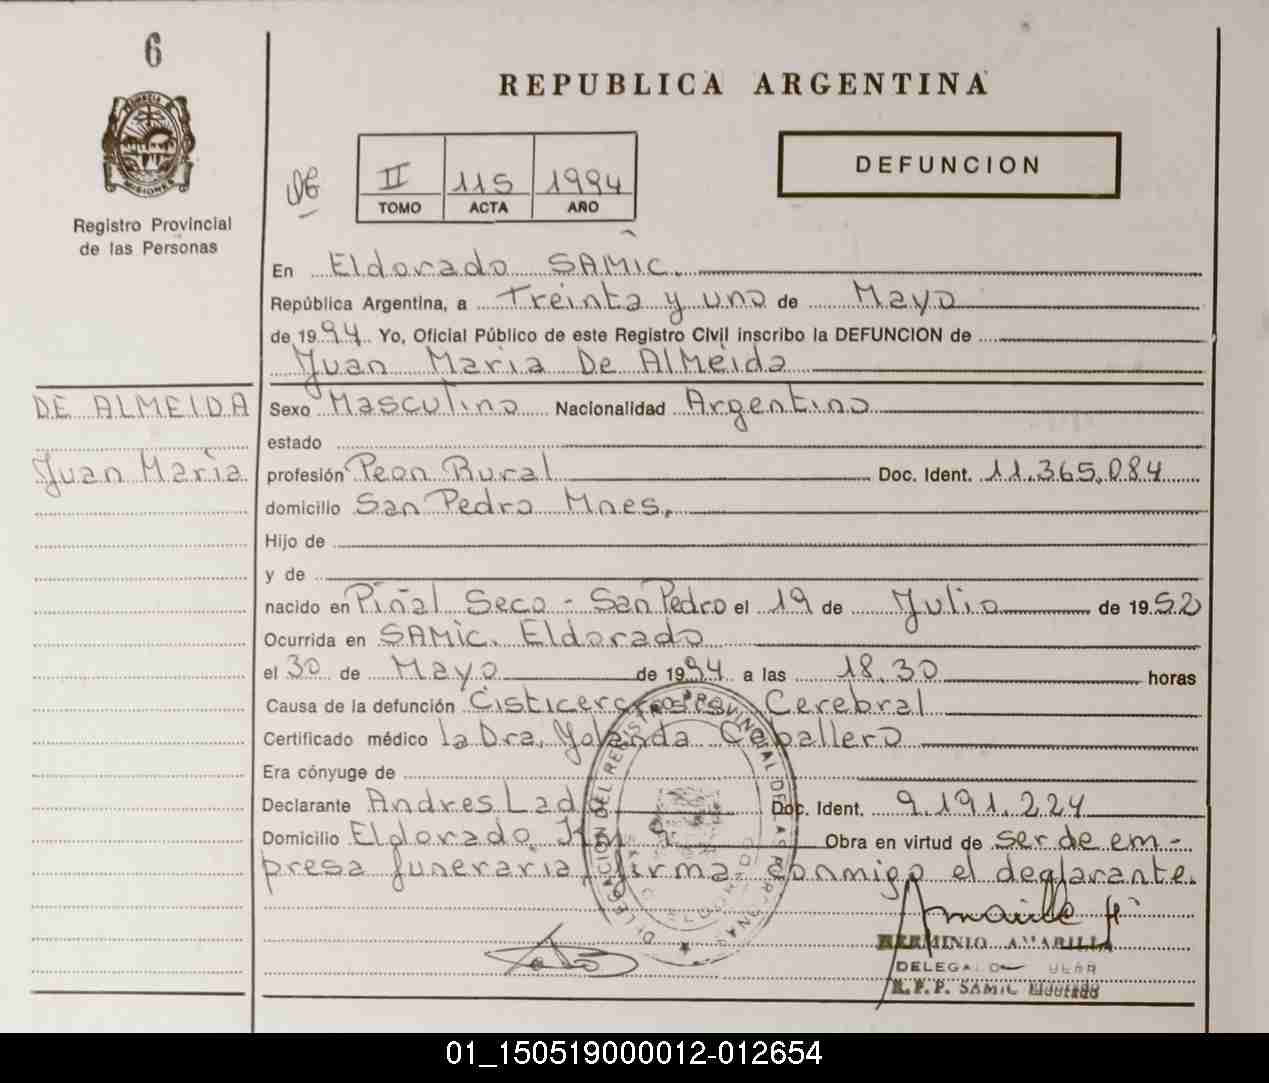 6
REPUBLICA ARGENTINA
PROVINCIA DE
MISIONES
Registro Provincial
de las Personas
DEFUNCION
II 115 1994
TOMO ACTA AÑO
En Eldorado SAMIC.
República Argentina, a Treinta y uno de Mayo
de 1994 Yo, Oficial Público de este Registro Civil inscribo la DEFUNCION de
Juan Maria De Almeida
DE ALMEIDA
Juan Maria
Sexo Masculino Nacionalidad Argentino
estado
profesión Peon Rural Doc. Ident. 11.365.084
domicilio San Pedro Mnes.
Hijo de
y de
nacido en Piñal Seco - San Pedro el 19 de Julio de 1952
Ocurrida en SAMIC. Eldorado
el 30 de Mayo de 1994 a las 18.30 horas
Causa de la defunción Cisticercosis Cerebral
Certificado médico la Dra. Yolanda Caballero
Era cónyuge de
Declarante Andres Lad Doc. Ident. 9.191.224
Domicilio Eldorado. Km 9 Obra en virtud de ser de em-
presa funeraria, firma conmigo el declarante.
DELEGACION DEL REGISTRO PROVINCIAL DE LAS PERSONAS
HERMINIO AMARILLA
R.P.P. SAMIC Eldorado
01_150519000012-012654